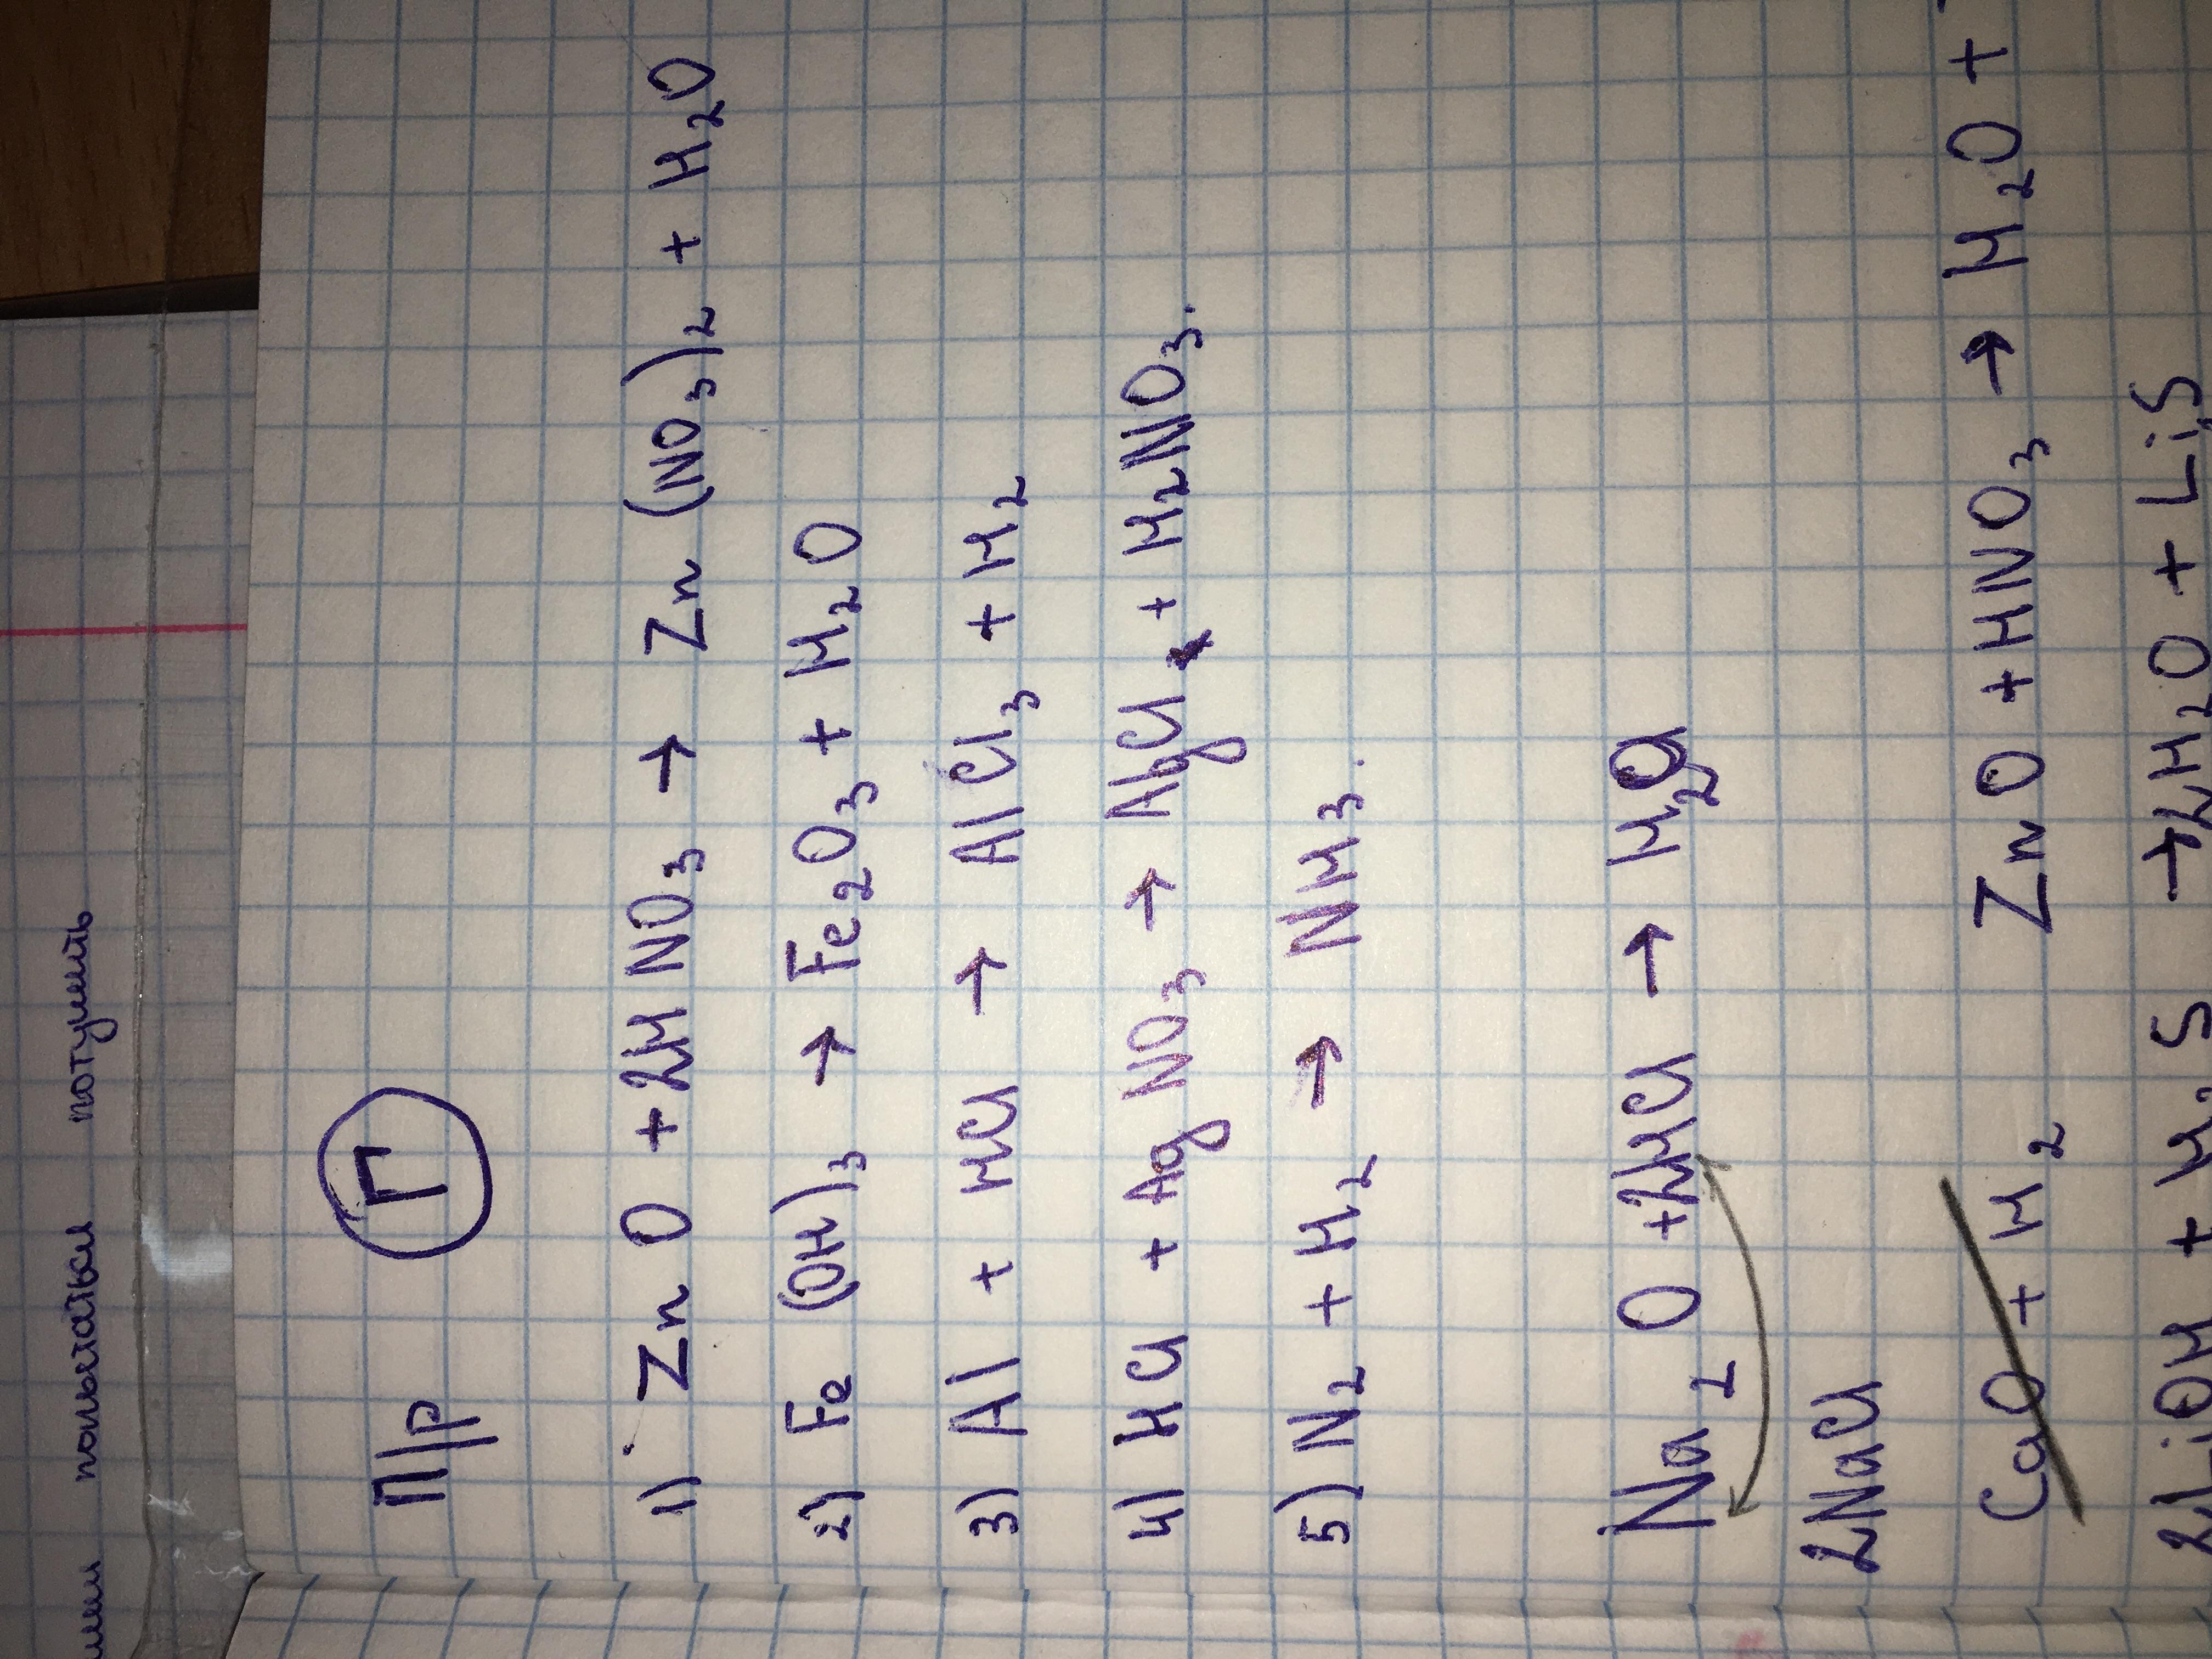 пользоваться потушить
П/р Г
1) Zn O + 2H NO3 → Zn (NO3)2 + H2O
2) Fe (OH)3 → Fe2O3 + H2O
3) Al + HCl → AlCl3 + H2
4) HCl + AgNO3 → AgCl + H2NO3.
5) N2 + H2 → NH3.
Na2O + 2HCl → H2O
2NaCl
CaO + H2 ZnO + HNO3 → H2O +
2LiOH + H2S → 2H2O + LiS